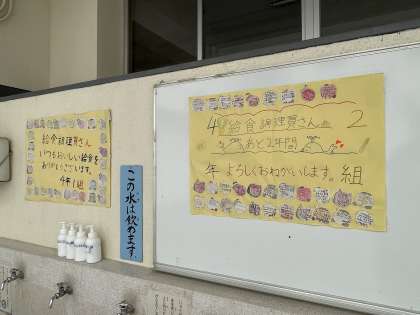 給食調理員さん
いつもおいしい給食を
ありがとうございます。
4年1組
この水は飲めます。
4 給食調理員さん 2
あと2年間
年 よろしくおねがいします。 組